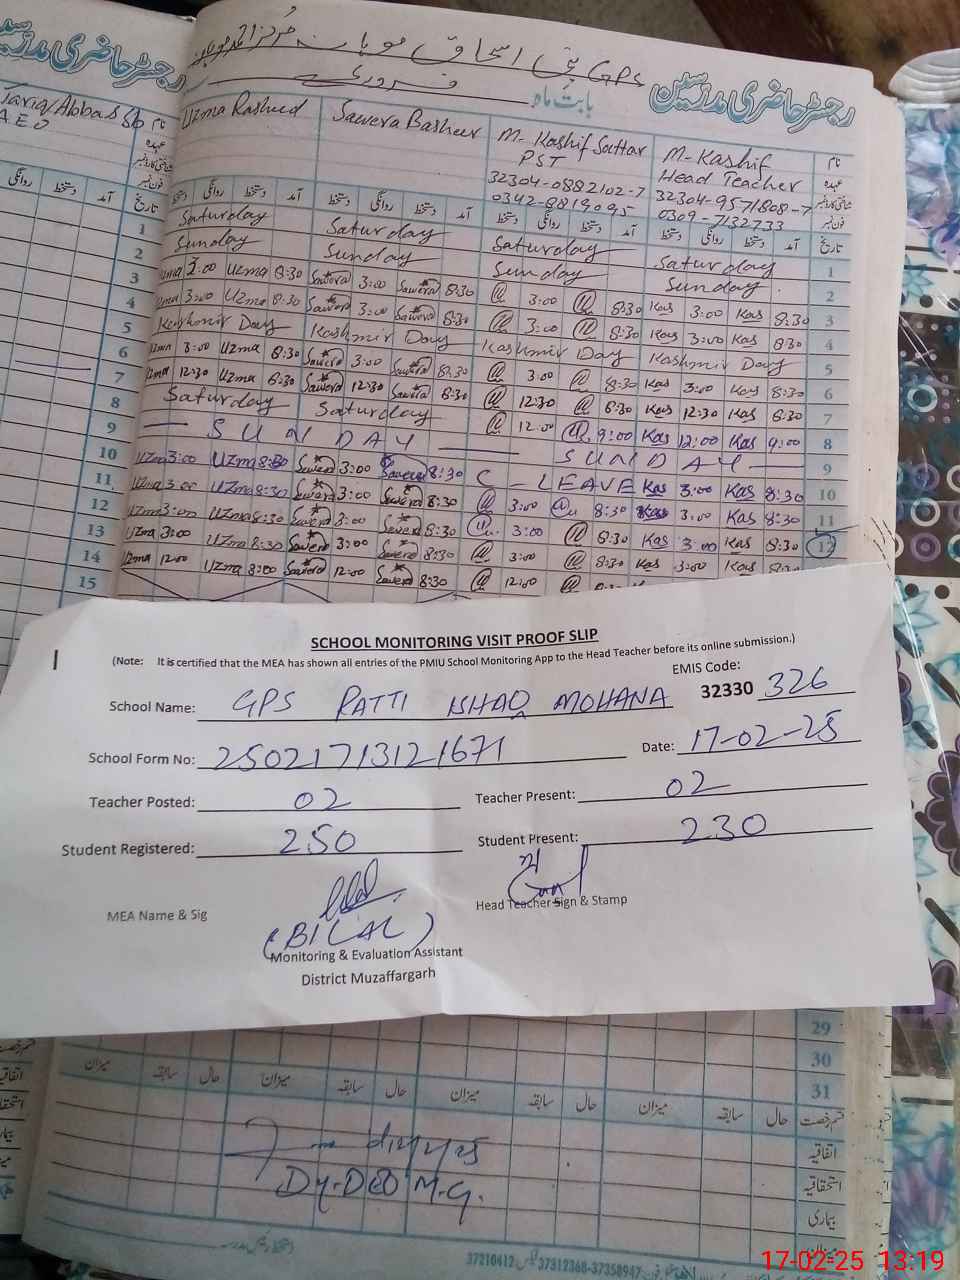 رجسٹر حاضری مدرسین
GPS پتی اسحاق موہانہ مرکز
رجسٹر حاضری مدرسین
بابت ماہ فروری
Tariq Abbas Sb
AEO
نام
عہدہ
فون نمبر
Uzma Rasheed
Sawera Basheer
M- Kashif Sattar
PST
32304-0882102-7
0342-8819095
M-Kashif
Head Teacher
32304-9571808-7
0309-7132733
نام
عہدہ
شناختی کارڈ نمبر
فون نمبر
روانگی دستخط آمد تاریخ دستخط روانگی دستخط آمد دستخط روانگی دستخط آمد دستخط روانگی دستخط آمد دستخط روانگی دستخط آمد تاریخ
1 Saturday Saturday Saturday Saturday 1
2 Sunday Sunday Sunday Sunday 2
3 Uzma 3:00 Uzma 8:30 Sawera 3:00 Sawera 8:30 3:00 8:30 Kas 3:00 Kas 8:30 3
4 Uzma 3:00 Uzma 8:30 Sawera 3:00 Sawera 8:30 3:00 8:30 Kas 3:00 Kas 8:30 4
5 Kashmir Day Kashmir Day Kashmir Day Kashmir Day 5
6 Uzma 3:00 Uzma 8:30 Sawera 3:00 Sawera 8:30 3:00 8:30 Kas 3:00 Kas 8:30 6
7 Uzma 12:30 Uzma 8:30 Sawera 12:30 Sawera 8:30 12:30 8:30 Kas 12:30 Kas 8:30 7
8 Saturday Saturday 12:00 9:00 Kas 12:00 Kas 9:00 8
9 SUNDAY SUNDAY 9
10 Uzma 3:00 Uzma 8:30 Sawera 3:00 Sawera 8:30 C-LEAVE Kas 3:00 Kas 8:30 10
11 Uzma 3:00 Uzma 8:30 Sawera 3:00 Sawera 8:30 3:00 8:30 Kas 3:00 Kas 8:30 11
12 Uzma 3:00 Uzma 8:30 Sawera 3:00 Sawera 8:30 3:00 8:30 Kas 3:00 Kas 8:30 12
13 Uzma 3:00 Uzma 8:30 Sawera 3:00 Sawera 8:30 3:00 8:30 Kas 3:00 Kas
14 Uzma 12:00 Uzma 8:00 Sawera 12:00 Sawera 8:30 12:00
15
SCHOOL MONITORING VISIT PROOF SLIP
(Note: It is certified that the MEA has shown all entries of the PMIU School Monitoring App to the Head Teacher before its online submission.)
School Name: GPS PATTI ISHAQ MOHANA EMIS Code: 32330 326
School Form No: 25021713121671 Date: 17-02-25
Teacher Posted: 02 Teacher Present: 02
Student Registered: 250 Student Present: 230
MEA Name & Sig Head Teacher Sign & Stamp
(BILAL)
Monitoring & Evaluation Assistant
District Muzaffargarh
29
30
31
میزان سابقہ حال میزان سابقہ حال میزان سابقہ حال میزان سابقہ حال قسم رخصت
اتفاقیہ
استحقاقیہ
بیماری
میزان
Dy-DEO M.G.
37210412 37312368-37358947
17-02-25 13:19